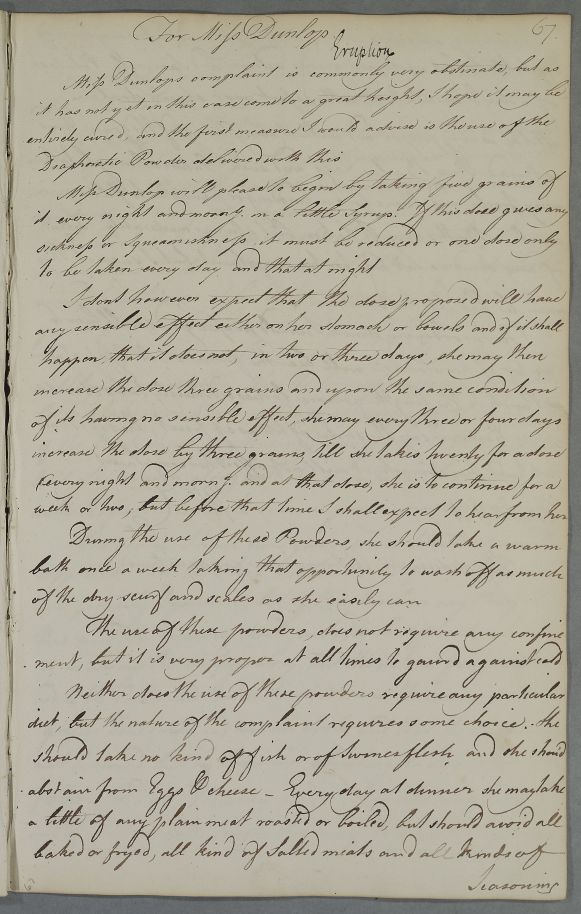 For Miss Dunlop
67.
Eruption
Miss Dunlops complaint is commonly very obstinate, but as
it has not yet in this case come to a great height, I hope it may be
entirely cured, and the first measure I would advise is the use of the
Diaphoretic Powder delivered with this
Miss Dunlop will please to begin by taking five grains of
it every night and morng. in a little Syrup. If this dose gives any
sickness or Squeamishness it must be reduced or one dose only
to be taken every day and that at night
I dont however expect that the dose proposed will have
any sensible effect either on her stomach or bowels and if it shall
happen, that it does not, in two or three days, she may then
increase the dose three grains and upon the same condition
of its having no sensible effect, she may every three or four days
increase the dose by three grains, till she takes twenty for a dose
every night and morng. and at that dose, she is to continue for a
week or two, but before that time I shall expect to hear from her
During the use of these Powders she should take a warm
bath once a week taking that opportunity to wash off as much
of the dry scurf and scales as she easily can
The use of these powders, does not require any confine
ment, but it is very proper at all times to gaurd against cold
Neither does the use of these powders require any particular
diet, but the nature of the complaint requires some choice. She
should take no kind of fish or of Swines flesh and she should
abstain from Eggs & cheese - Every day at dinner she may take
a little of any plain meat roasted or boiled, but should avoid all
baked or fryed, all kind of Salted meats and all kinds of
Seasoning